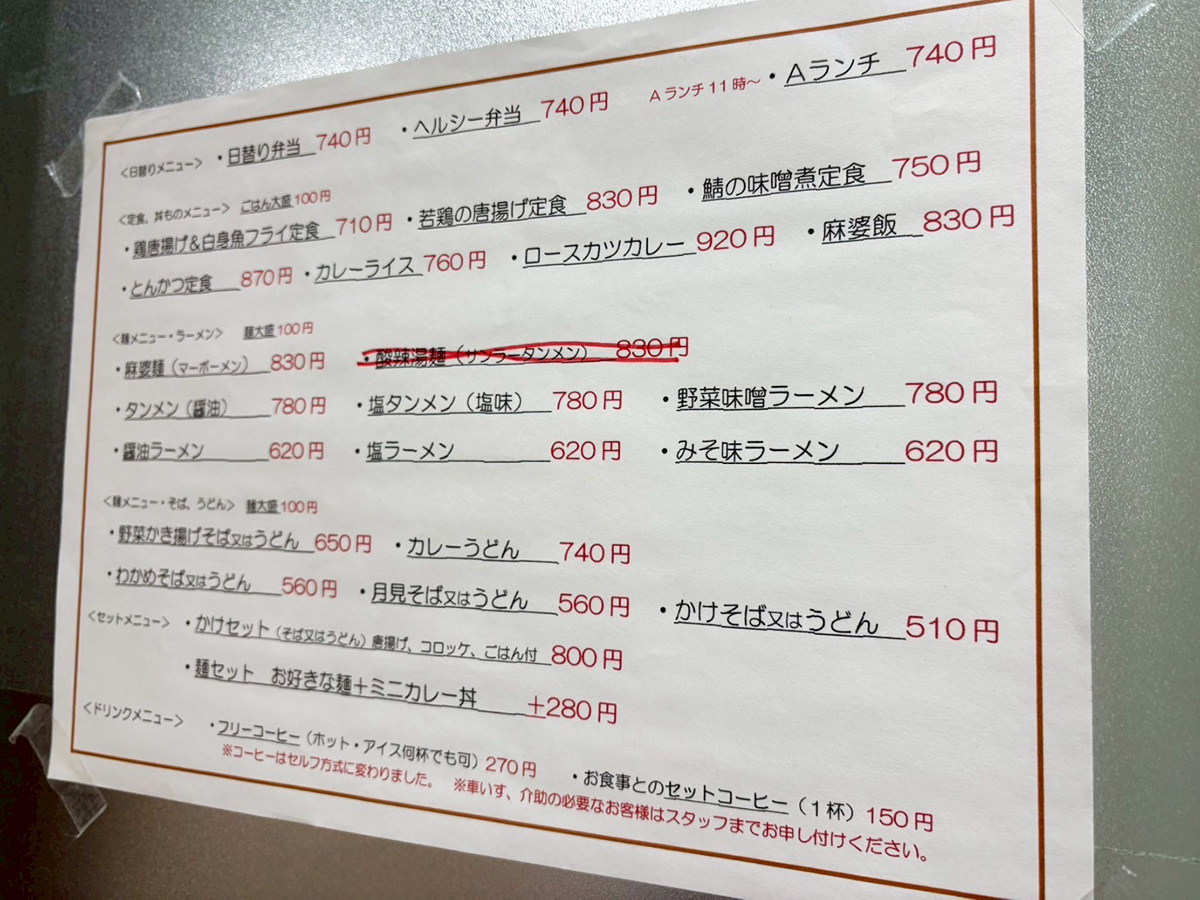 <日替りメニュー> ・日替り弁当 740円 ・ヘルシー弁当 740円 Aランチ11時～ ・Aランチ 740円
<定食、丼ものメニュー> ごはん大盛100円
・鶏唐揚げ＆白身魚フライ定食 710円 ・若鶏の唐揚げ定食 830円 ・鯖の味噌煮定食 750円
・とんかつ定食 870円 ・カレーライス 760円 ・ロースカツカレー 920円 ・麻婆飯 830円
<麺メニュー・ラーメン> 麺大盛100円
・麻婆麺（マーボーメン） 830円 ・酸辣湯麺（サンラータンメン） 830円
・タンメン（醤油） 780円 ・塩タンメン（塩味） 780円 ・野菜味噌ラーメン 780円
・醤油ラーメン 620円 ・塩ラーメン 620円 ・みそ味ラーメン 620円
<麺メニュー・そば、うどん> 麺大盛100円
・野菜かき揚げそば又はうどん 650円 ・カレーうどん 740円
・わかめそば又はうどん 560円 ・月見そば又はうどん 560円 ・かけそば又はうどん 510円
<セットメニュー> ・かけセット（そば又はうどん）唐揚げ、コロッケ、ごはん付 800円
・麺セット お好きな麺＋ミニカレー丼 ＋280円
<ドリンクメニュー> ・フリーコーヒー（ホット・アイス何杯でも可）270円 ・お食事とのセットコーヒー（1杯）150円
※コーヒーはセルフ方式に変わりました。 ※車いす、介助の必要なお客様はスタッフまでお申し付けください。